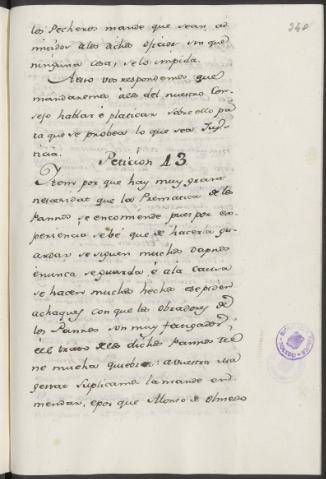 340
los Pecheros mande que sean ad
mitidos a los dichos oficios sin que
ninguna cosa, se lo impida.
A esto vos respondemos que
mandaremos a los del nuestro Con
sejo hablar é platicar sobre ello pa
ra que se probea lo que sea Jus
ticia.
Peticion 13.
Item por que hay muy grant
necesidat que la Premática de los
Pannos se encomiende pues por ex
periencia se bé que de hacerla gu
ardar se siguen muchos dapnos
é nunca se guarda é a la causa
se hacen muchos hechos é se piden
achaques con que los obradores de
los Pannos son muy fatigados,
é el trato de los dichos Pannos tie
ne mucha quiebra: a Vuestra Ma
gestat suplicamos la mande en
mendar, é por que Alonso de Olmedo